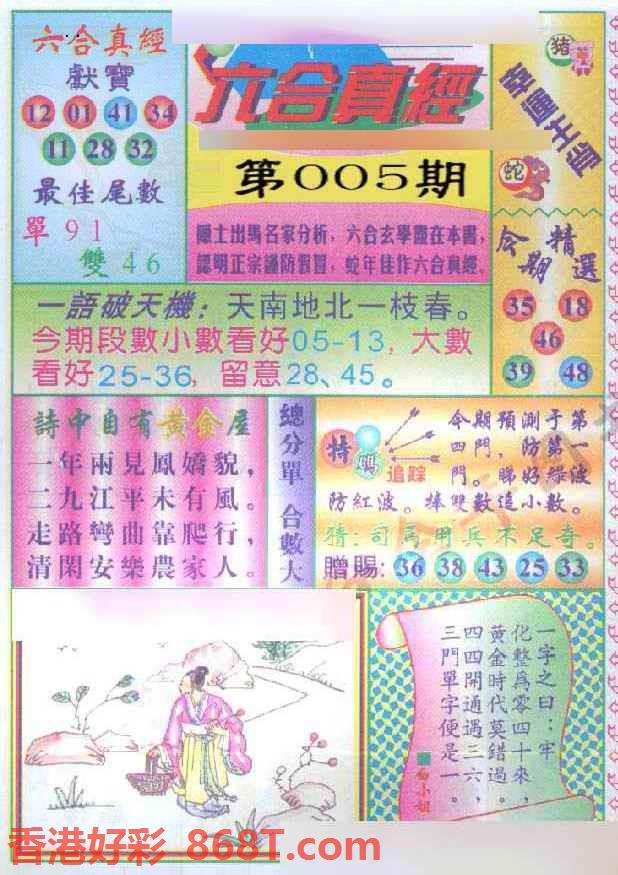 六合真經
獻寶
12 01 41 34
11 28 32
最佳尾數
單 91
雙 46
六合真經
第005期
隱士出馬名家分析，六合玄學盡在本書，
認明正宗謹防假冒，蛇年佳作六合真經。
豬
蛇
今期精選
35 18
46
39 48
一語破天機：天南地北一枝春。
今期段數小數看好05-13，大數
看好25-36，留意28、45。
詩中自有黃金屋
一年兩見鳳嬌貌，
二九江平未有風。
走路彎曲靠爬行，
清閑安樂農家人。
總分單 合數大
特碼
追踪
今期預測于第
四門，防第一
門。睇好綠波
防紅波。捧雙數追小數。
猜：司馬用兵不足奇。
贈賜：36 38 43 25 33
一字之曰：牢
化整為零四十來，
黃金時代莫錯過。
四四開通遇三六，
三門單字便是一。
白小姐
香港好彩 868T.com